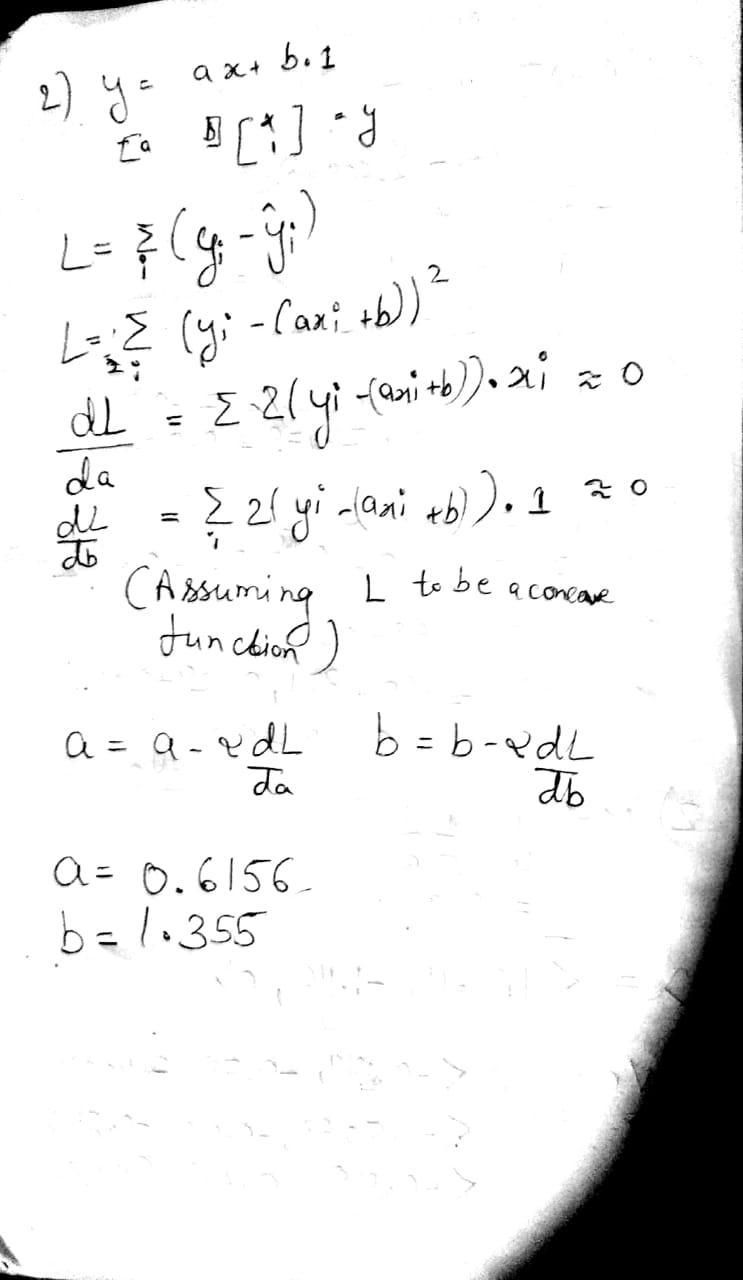 2) y = ax + b.1
[a b] [x 1] = y
L = Σ i (yi - ŷi)
L = Σ i (yi - (axi + b))²
dL/da = Σ 2(yi - (axi + b)) . xi ≈ 0
dL/db = Σ i 2(yi - (axi + b)) . 1 ≈ 0
(Assuming L to be a concave
function)
a = a - α dL/da b = b - α dL/db
a = 0.6156
b = 1.355